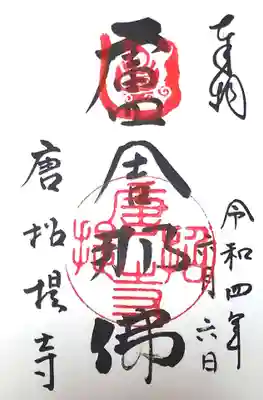 奉拝
令和四年六月六日
盧舎那佛
唐招提寺